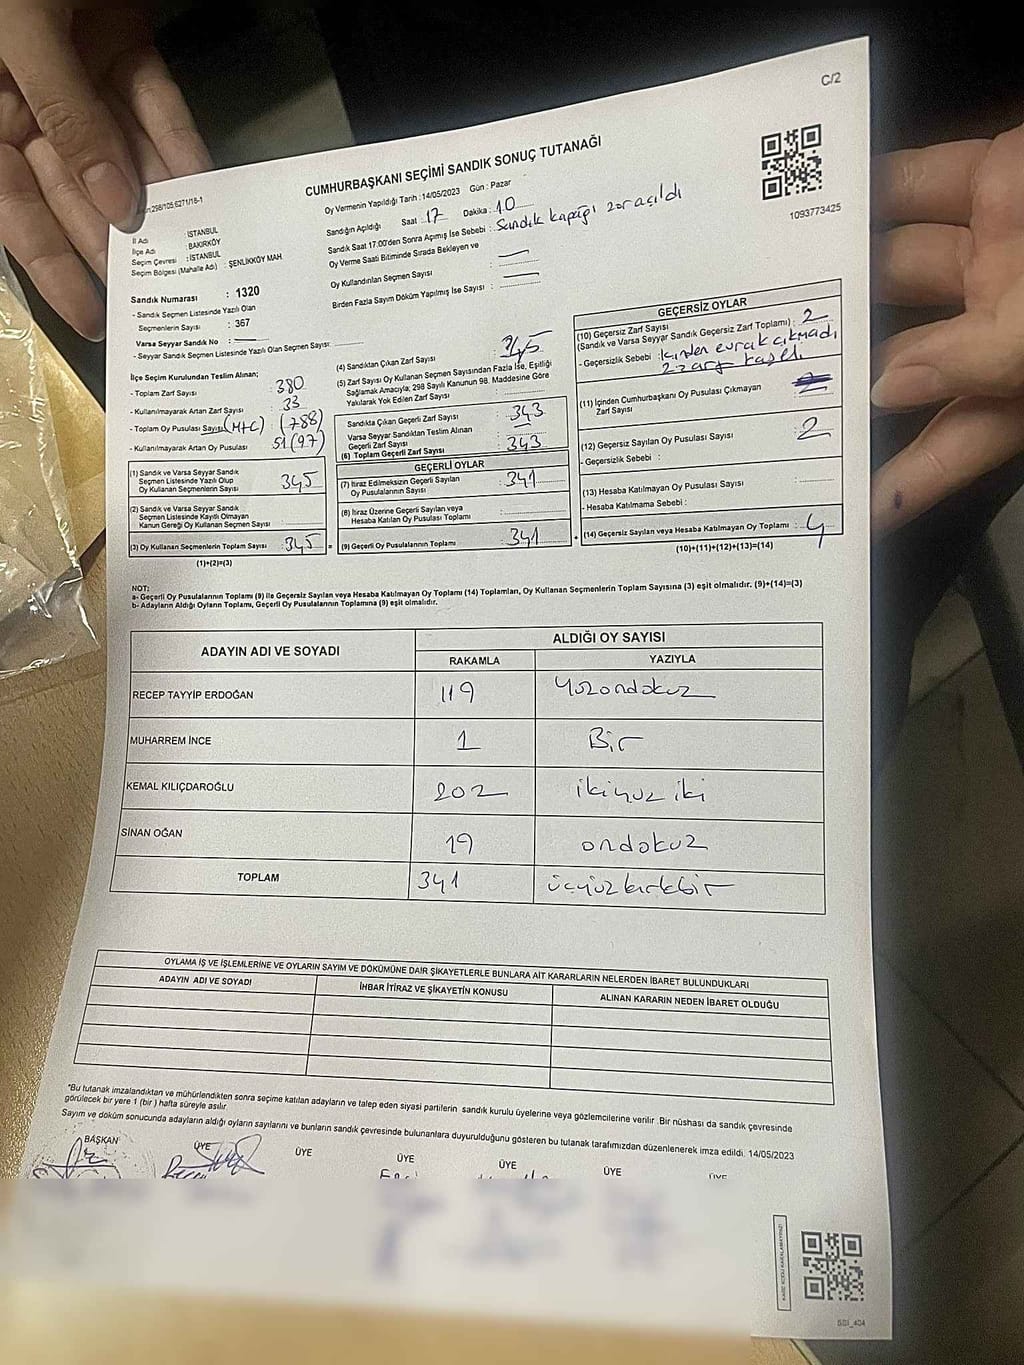 C/2
CUMHURBAŞKANI SEÇİMİ SANDIK SONUÇ TUTANAĞI
1093773425
İl Adı : İSTANBUL
İlçe Adı : BAKIRKÖY
Seçim Çevresi : İSTANBUL
Seçim Bölgesi (Mahalle Adı) : ŞENLİKKÖY MAH.
Oy Vermenin Yapıldığı Tarih : 14/05/2023 Gün : Pazar
Sandığın Açıldığı Saat 17 Dakika : 10
Sandık Saat 17.00'den Sonra Açılmış İse Sebebi : Sandık kapağı zor açıldı
Oy Verme Saati Bitiminde Sırada Bekleyen ve
Oy Kullandırılan Seçmen Sayısı : —
Birden Fazla Sayım Döküm Yapılmış İse Sayısı : —
Sandık Numarası : 1320
- Sandık Seçmen Listesinde Yazılı Olan
Seçmenlerin Sayısı : 367
Varsa Seyyar Sandık No : —
- Seyyar Sandık Seçmen Listesinde Yazılı Olan Seçmen Sayısı:
İlçe Seçim Kurulundan Teslim Alınan;
- Toplam Zarf Sayısı : 380
- Kullanılmayarak Artan Zarf Sayısı : 33
- Toplam Oy Pusulası Sayısı (M+C) (788)
- Kullanılmayarak Artan Oy Pusulası 51 (97)
(1) Sandık ve Varsa Seyyar Sandık
Seçmen Listesinde Yazılı Olup
Oy Kullanan Seçmenlerin Sayısı : 345
(2) Sandık ve Varsa Seyyar Sandık
Seçmen Listesinde Kayıtlı Olmayan
Kanun Gereği Oy Kullanan Seçmen Sayısı :
(3) Oy Kullanan Seçmenlerin Toplam Sayısı : 345
(1)+(2)=(3)
(4) Sandıktan Çıkan Zarf Sayısı : 345
(5) Zarf Sayısı Oy Kullanan Seçmen Sayısından Fazla İse, Eşitliği
Sağlamak Amacıyla; 298 Sayılı Kanunun 98. Maddesine Göre
Yakılarak Yok Edilen Zarf Sayısı :
Sandıkta Çıkan Geçerli Zarf Sayısı : 343
Varsa Seyyar Sandıktan Teslim Alınan
Geçerli Zarf Sayısı :
(6) Toplam Geçerli Zarf Sayısı : 343
GEÇERLİ OYLAR
(7) İtiraz Edilmeksizin Geçerli Sayılan
Oy Pusulalarının Sayısı : 341
(8) İtiraz Üzerine Geçerli Sayılan veya
Hesaba Katılan Oy Pusulası Toplamı :
= (9) Geçerli Oy Pusulalarının Toplamı : 341
GEÇERSİZ OYLAR
(10) Geçersiz Zarf Sayısı
(Sandık ve Varsa Seyyar Sandık Geçersiz Zarf Toplamı) : 2
- Geçersizlik Sebebi : İçinden evrak çıkmadı
2 zarf
(11) İçinden Cumhurbaşkanı Oy Pusulası Çıkmayan
Zarf Sayısı :
(12) Geçersiz Sayılan Oy Pusulası Sayısı : 2
- Geçersizlik Sebebi :
(13) Hesaba Katılmayan Oy Pusulası Sayısı :
- Hesaba Katılmama Sebebi :
+ (14) Geçersiz Sayılan veya Hesaba Katılmayan Oy Toplamı : 4
(10)+(11)+(12)+(13)=(14)
NOT:
a- Geçerli Oy Pusulalarının Toplamı (9) ile Geçersiz Sayılan veya Hesaba Katılmayan Oy Toplamı (14) Toplamları, Oy Kullanan Seçmenlerin Toplam Sayısına (3) eşit olmalıdır. (9)+(14)=(3)
b- Adayların Aldığı Oyların Toplamı, Geçerli Oy Pusulalarının Toplamına (9) eşit olmalıdır.
ADAYIN ADI VE SOYADI ALDIĞI OY SAYISI
RAKAMLA YAZIYLA
RECEP TAYYİP ERDOĞAN 119 Yüzondokuz
MUHARREM İNCE 1 Bir
KEMAL KILIÇDAROĞLU 202 ikiyüz iki
SİNAN OĞAN 19 ondokuz
TOPLAM 341 üçyüzkırkbir
OYLAMA İŞ VE İŞLEMLERİNE VE OYLARIN SAYIM VE DÖKÜMÜNE DAİR ŞİKAYETLERLE BUNLARA AİT KARARLARIN NELERDEN İBARET BULUNDUKLARI
ADAYIN ADI VE SOYADI İHBAR İTİRAZ VE ŞİKAYETİN KONUSU ALINAN KARARIN NEDEN İBARET OLDUĞU
*Bu tutanak imzalandıktan ve mühürlendikten sonra seçime katılan adayların ve talep eden siyasi partilerin sandık kurulu üyelerine veya gözlemcilerine verilir. Bir nüshası da sandık çevresinde
görülecek bir yere 1 (bir) hafta süreyle asılır.
Sayım ve döküm sonucunda adayların aldığı oyların sayılarını ve bunların sandık çevresinde bulunanlara duyurulduğunu gösteren bu tutanak tarafımızdan düzenlenerek imza edildi. 14/05/2023
BAŞKAN ÜYE ÜYE ÜYE ÜYE ÜYE ÜYE